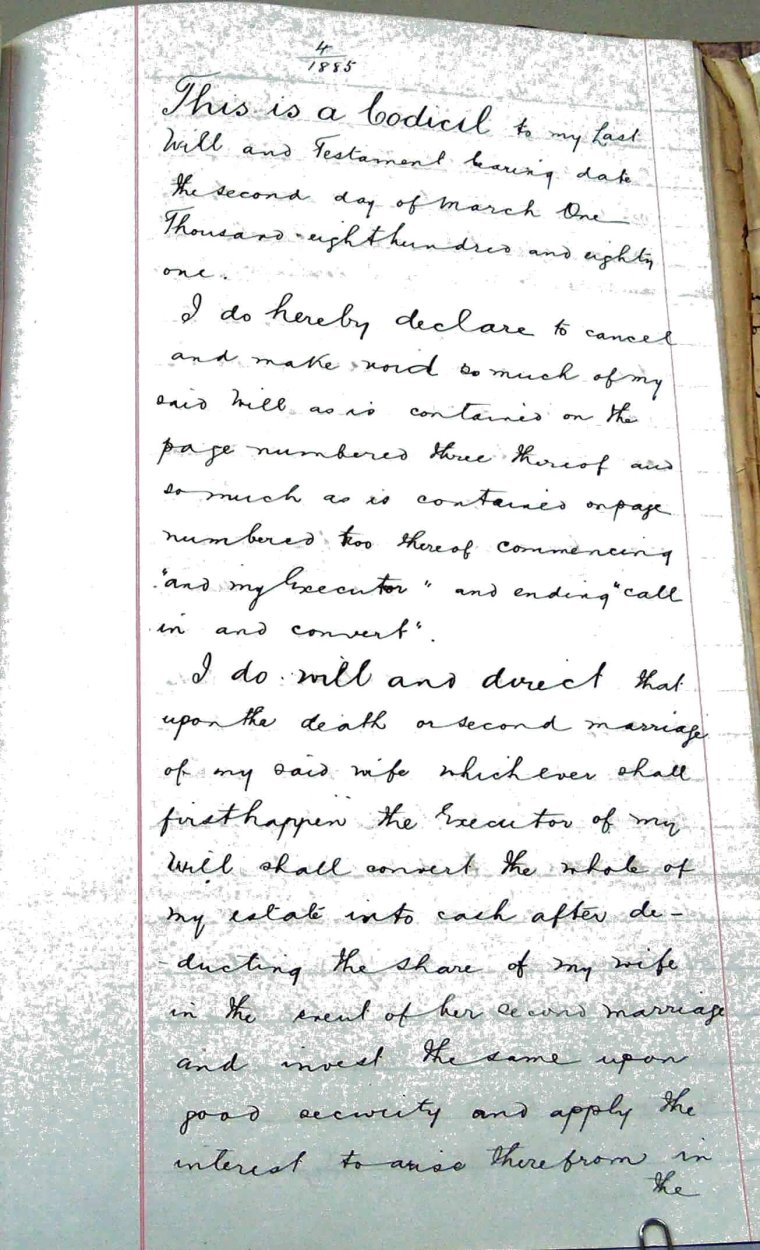 4
1885
This is a Codicil to my Last
Will and Testament bearing date
the second day of March One
Thousand eight hundred and eighty
one.
I do hereby declare to cancel
and make void so much of my
said Will as is contained on the
page numbered three thereof and
so much as is contained on page
numbered two thereof commencing
"and my Executor" and ending "call
in and convert".
I do will and direct that
upon the death or second marriage
of my said wife which ever shall
first happen the Executor of my
Will shall convert the whole of
my estate into cash after de-
-ducting the share of my wife
in the event of her second marriage
and invest the same upon
good security and apply the
interest to arise therefrom in
the